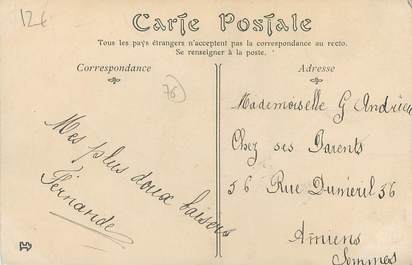 12€
Carte Postale
Tous les pays étrangers n'acceptent pas la correspondance au recto.
Se renseigner à la poste.
Correspondance
Adresse
76
Mes plus doux baisers
Fernande
Mademoiselle G Andrieu
Chez ses Parents
56 Rue Dumeril 56
Amiens
Sommes